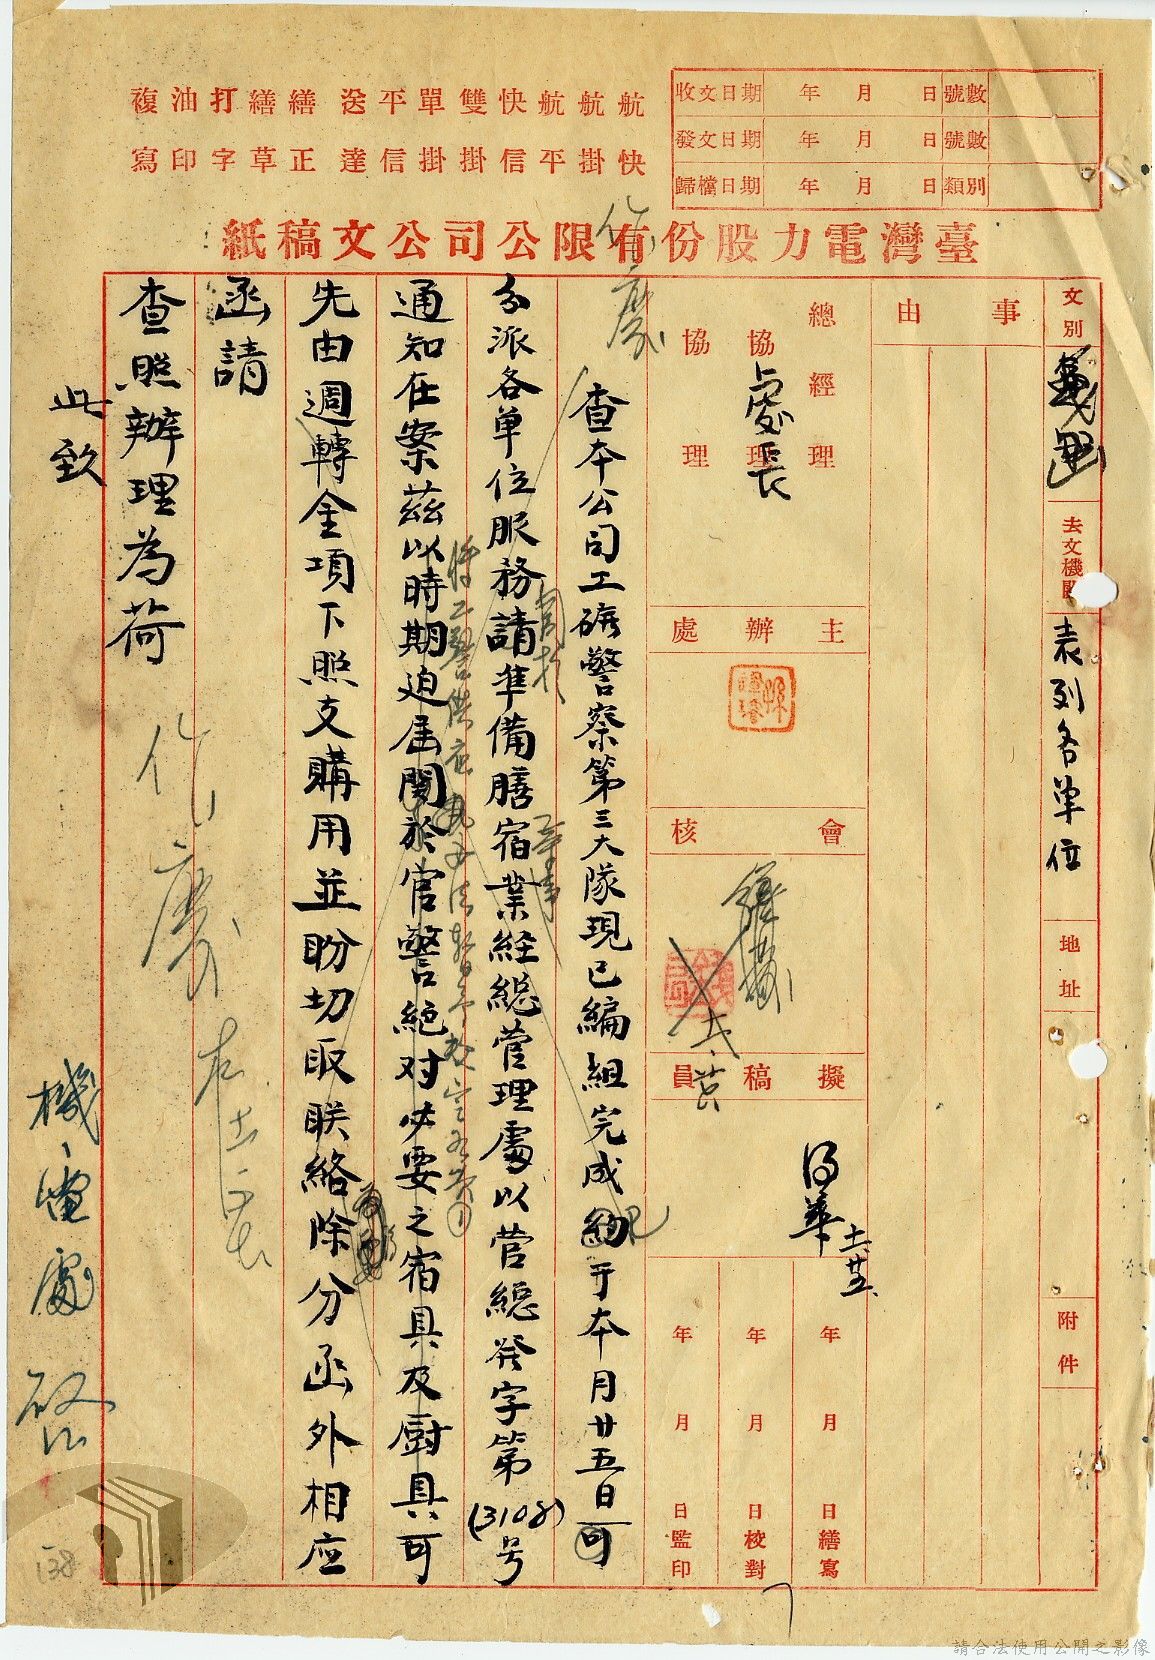 收文日期 年 月 日 號數
發文日期 年 月 日 號數
歸檔日期 年 月 日 類別
航快
航掛
航平
快信
雙掛
單掛
平信
送達
繕正
繕草
打字
油印
複寫
臺灣電力股份有限公司公文稿紙
文別
代電 函
去文機關
表列各單位
地址
附件
事由
總經理
協理
協理
處長
主辦處
會核
擬稿員
年 月 日繕寫
年 月 日校對
年 月 日監印
作廢
查本公司工礦警察第三大隊現已編組完成約于本月廿五日可
分派各單位服務請準備膳宿業經總管理處以管總發字第(3108)号
通知在案茲以時期迫届関於官警絕对必要之宿具及厨具可
先由週轉金項下照支購用並盼切取联絡除分函外相应
函請
查照辦理為荷
此致
作廢
機電處 啟
138
請合法使用公開之影像